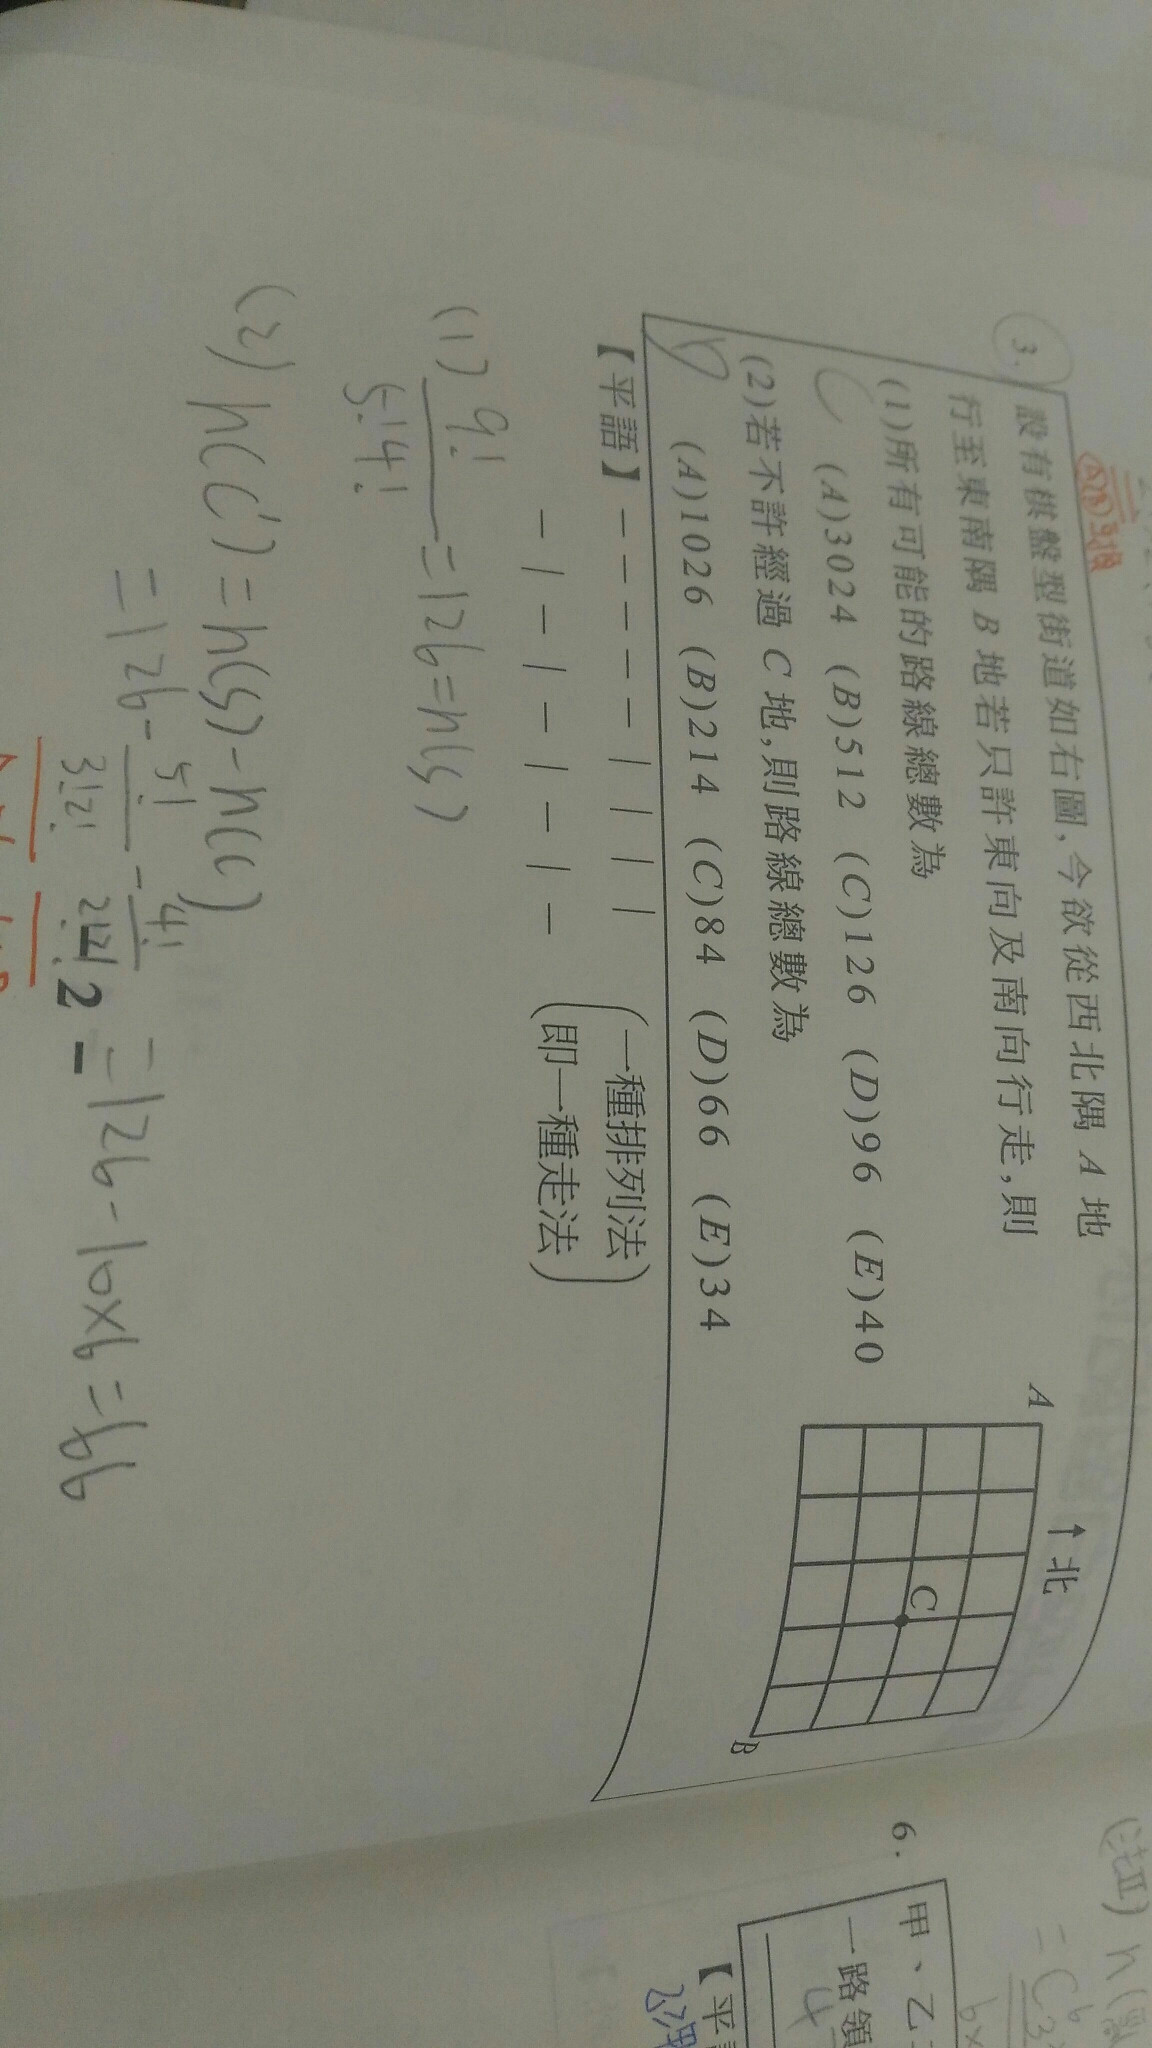 3. 設有棋盤型街道如右圖,今欲從西北隅 A 地
行至東南隅 B 地若只許東向及南向行走,則
(1)所有可能的路線總數為
(A)3024 (B)512 (C)126 (D)96 (E)40
(2)若不許經過 C 地,則路線總數為
(A)1026 (B)214 (C)84 (D)66 (E)34
A
↑北
C
B
【平語】— — — — — | | | |
— | — | — | — | —
(一種排列法
即一種走法)
(1) 9!/5!4! = 126 = n(S)
(2) n(C') = n(S) - n(C)
= 126 - 5!/3!2! · 4!/2!2! = 126 - 10×6 = 66
6. 甲、乙
一路領
(註II)